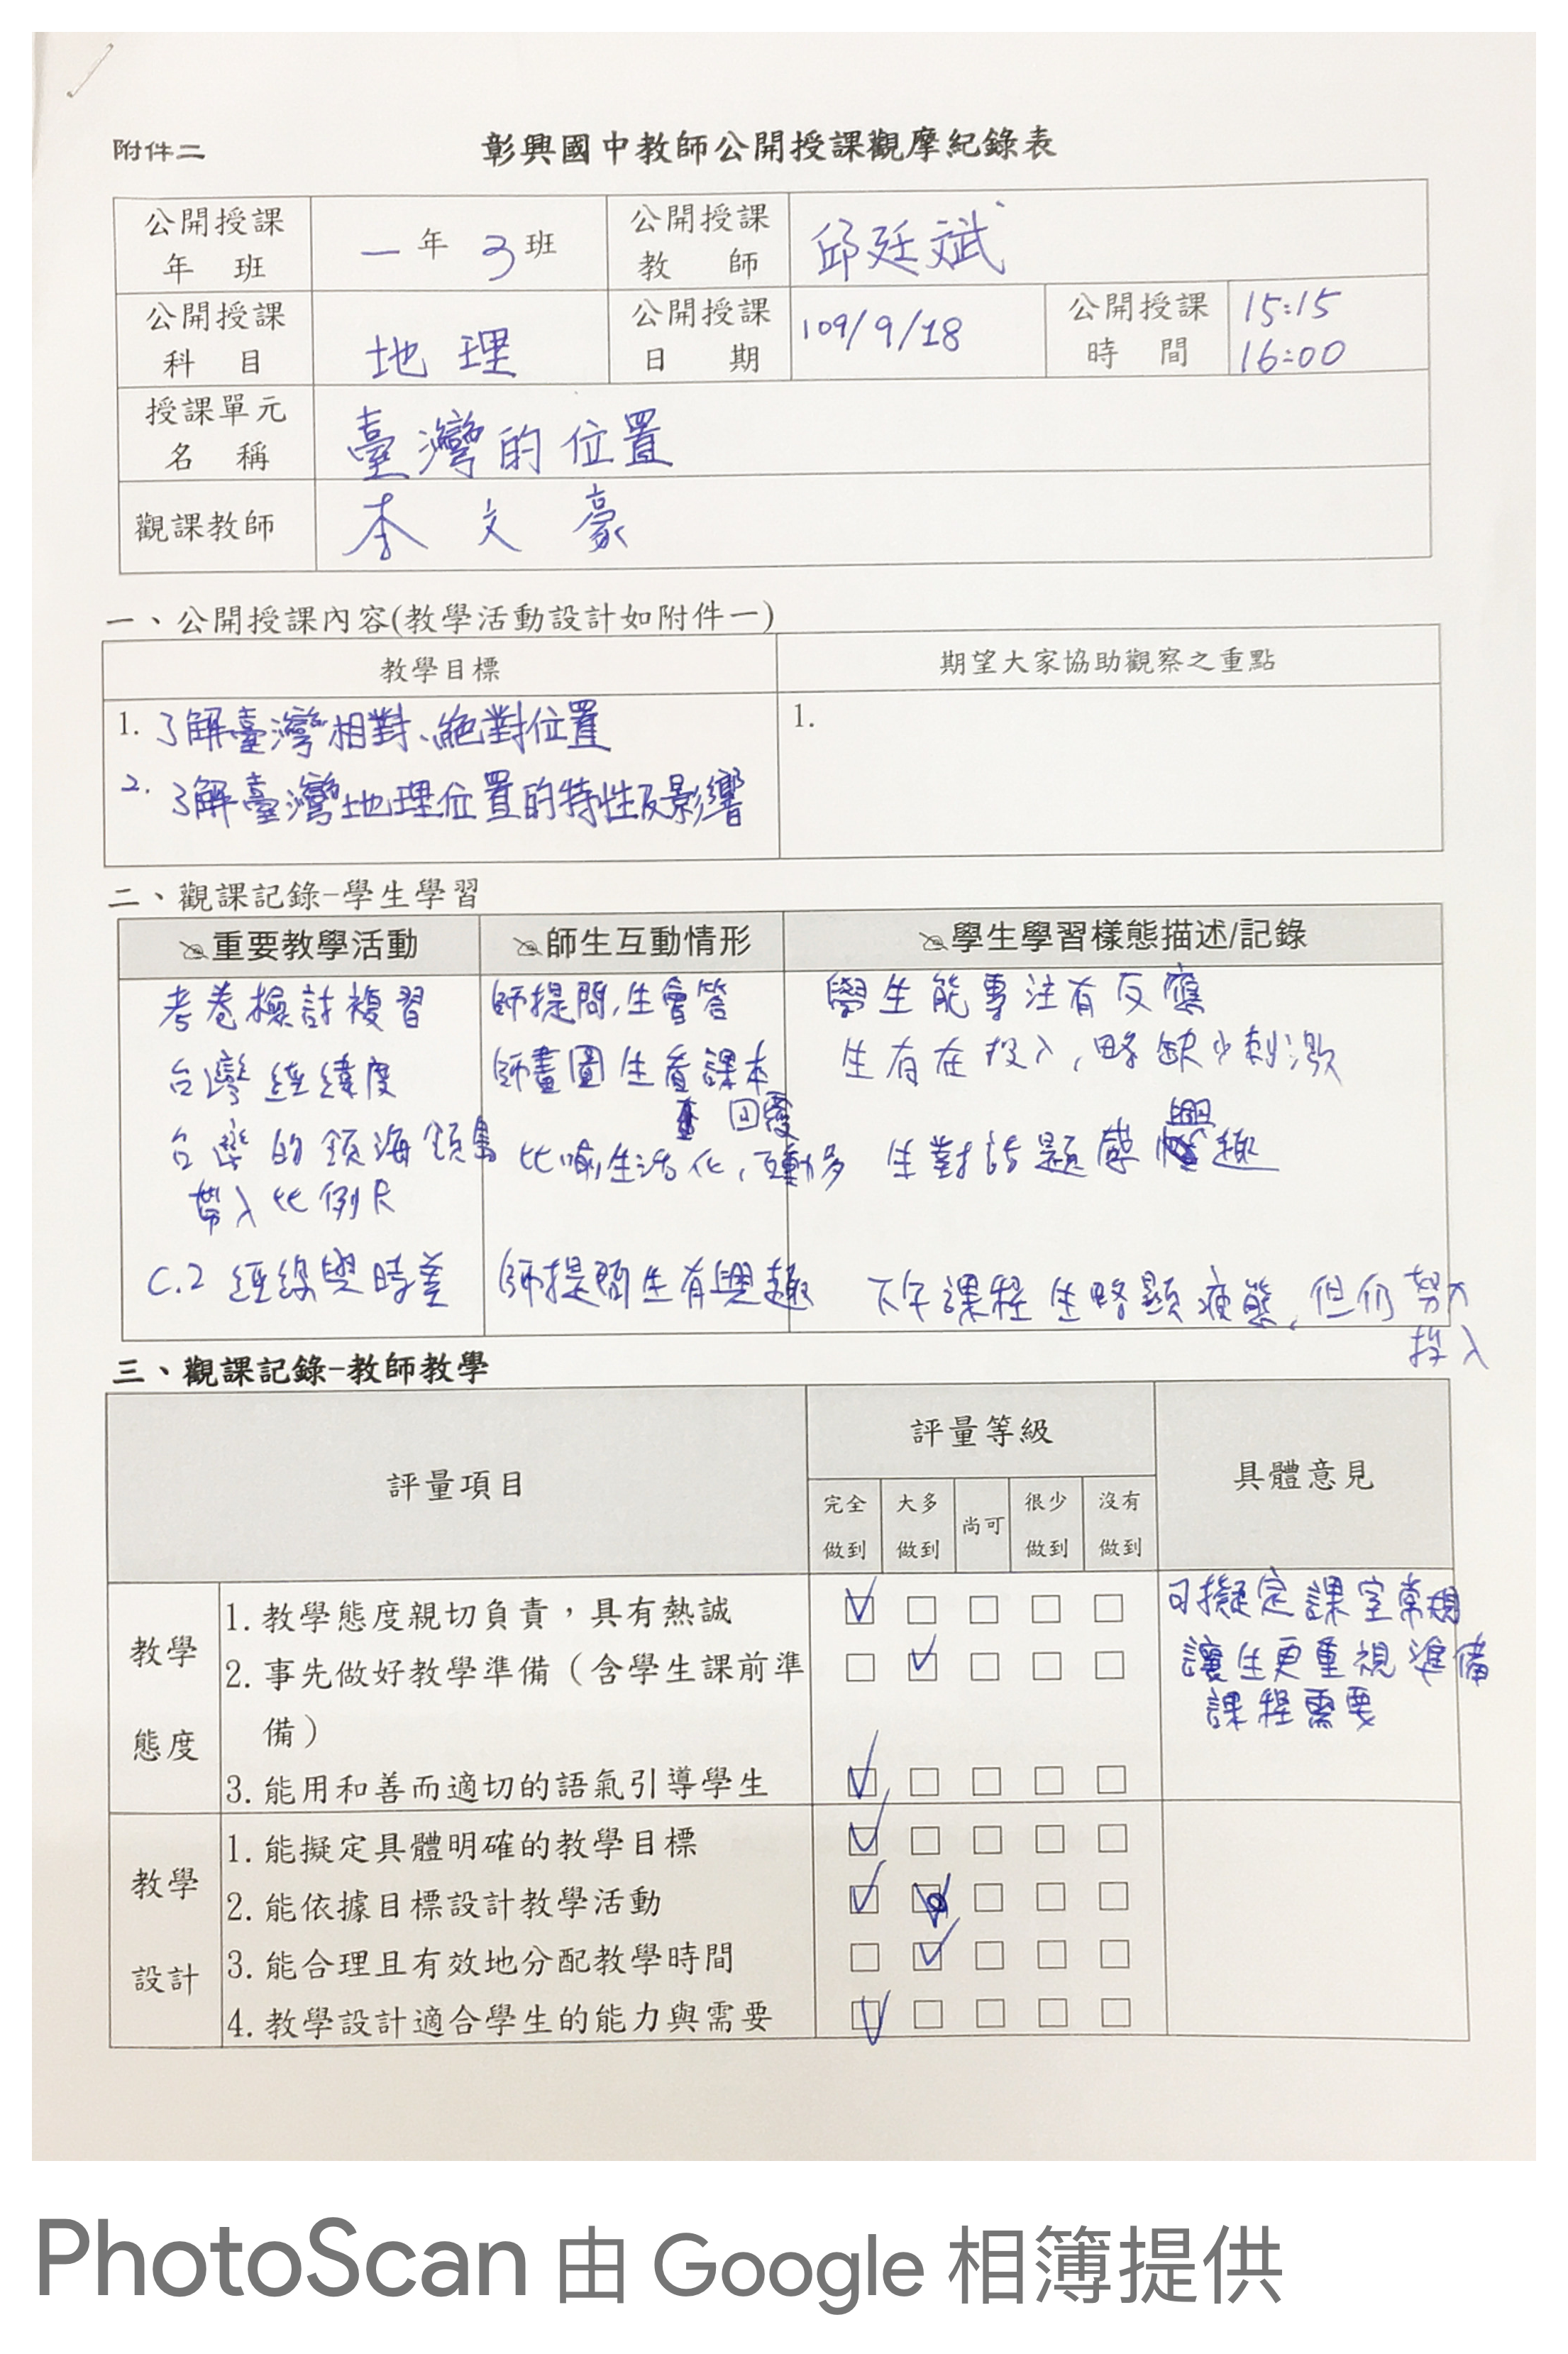 附件二
彰興國中教師公開授課觀摩紀錄表
公開授課年班 一年3班 公開授課教師 邱廷斌
公開授課科目 地理 公開授課日期 109/9/18 公開授課時間 15:15 16:00
授課單元名稱 臺灣的位置
觀課教師 李文豪
一、公開授課內容(教學活動設計如附件一)
教學目標 期望大家協助觀察之重點
1. 了解臺灣相對、絕對位置 1.
2. 了解臺灣地理位置的特性及影響
二、觀課記錄-學生學習
重要教學活動 師生互動情形 學生學習樣態描述/記錄
考卷檢討複習 師提問,生會答 學生能專注有反應
台灣經緯度 師畫圖生看課本 生有在投入,略缺少刺激
回覆
台灣的領海領島 比喻生活化,互動多 生對話題感興趣
帶入比例尺
C.2 經線與時差 師提問生有興趣 下午課程生略顯疲態,但仍努力
投入
三、觀課記錄-教師教學
評量項目 評量等級 具體意見
完全做到 大多做到 尚可 很少做到 沒有做到
教學態度
1. 教學態度親切負責,具有熱誠 可擬定課室常規
2. 事先做好教學準備(含學生課前準 讓生更重視準備
備) 課程需要
3. 能用和善而適切的語氣引導學生
教學設計
1. 能擬定具體明確的教學目標
2. 能依據目標設計教學活動
3. 能合理且有效地分配教學時間
4. 教學設計適合學生的能力與需要
PhotoScan 由 Google 相簿提供